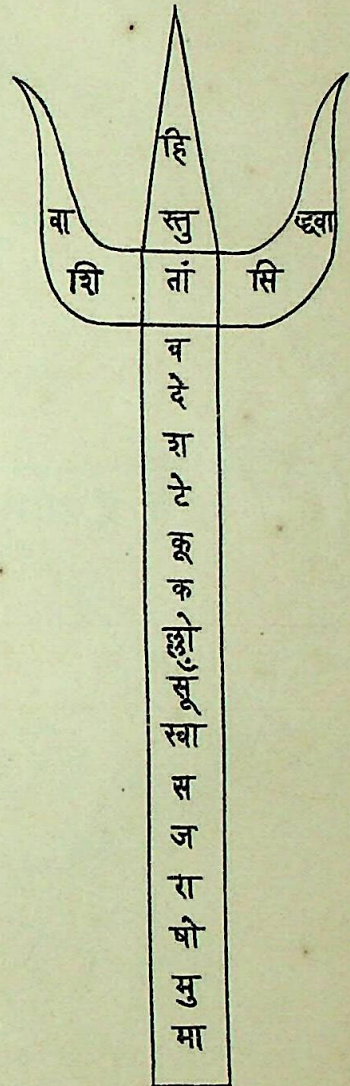 हि
वा स्तु द्ध्वा
शि तां सि
व
दे
श
टे
कू
क
छो
सूँ
स्वा
स
ज
रा
षो
मु
मा